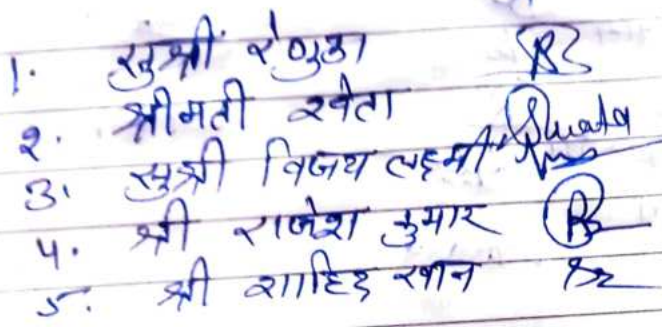 1. सुश्री रेणुका
2. श्रीमती श्वेता Shwata
3. सुश्री विजय लक्ष्मी
4. श्री राजेश कुमार
5. श्री शाहिद खान